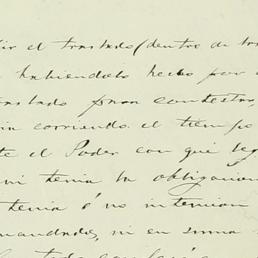 ir el traslado (dentro de tr
habiendolo hecho por
traslado para contestar
in corriendo el tiempo
te el Poder con que leg
ni tenia la obligacion
tenia ó no intencion
mandados, ni en suma